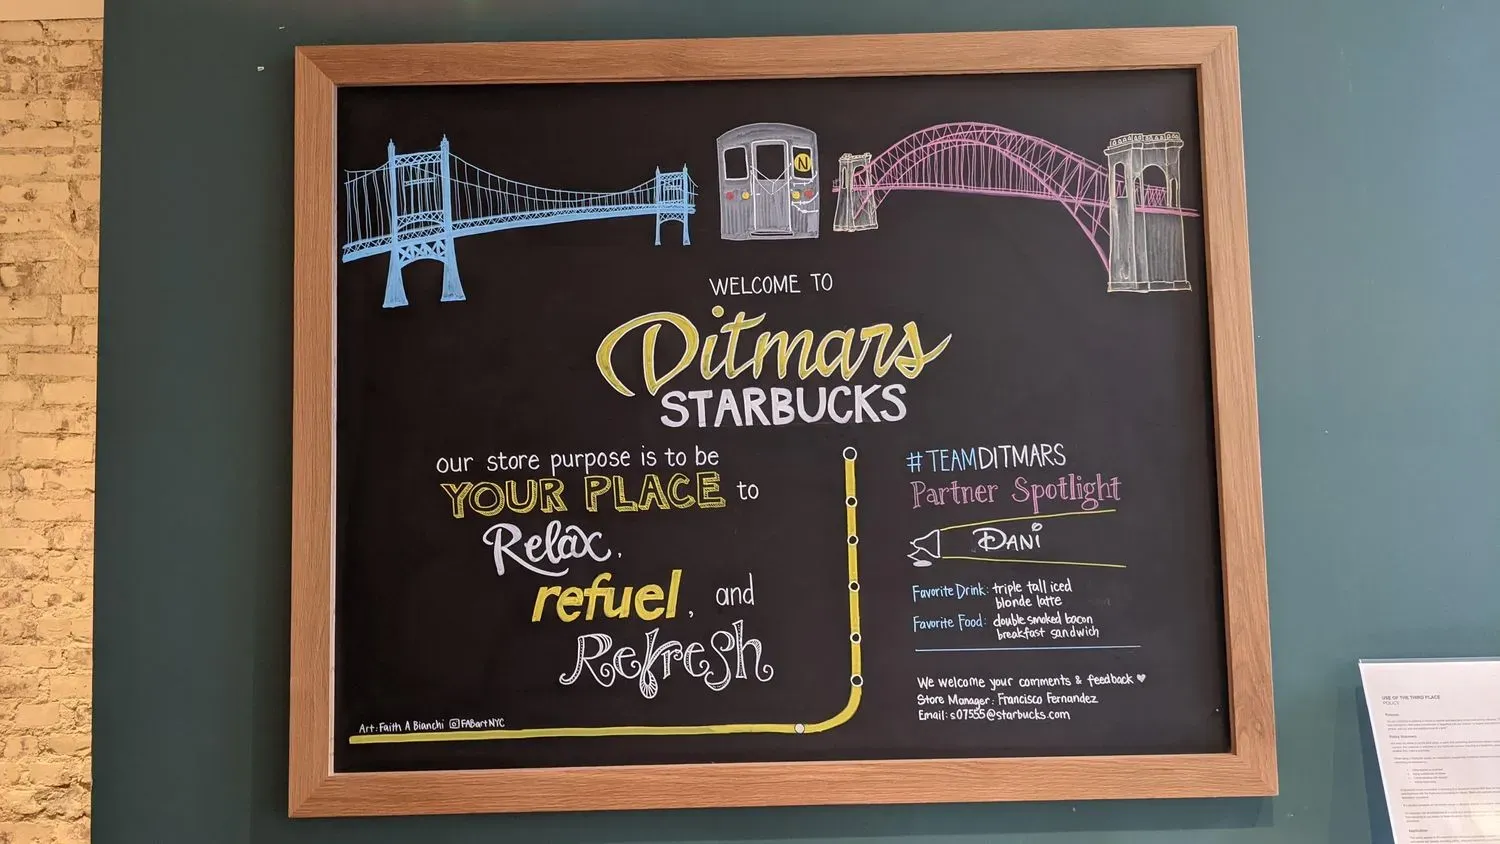 N
WELCOME TO
Ditmars
STARBUCKS
our store purpose is to be
YOUR PLACE to
Relax,
refuel, and
Refresh
Art: Faith A Bianchi @FABartNYC
#TEAMDITMARS
Partner Spotlight
DANI
Favorite Drink: triple tall iced
blonde latte
Favorite Food: double smoked bacon
breakfast sandwich
We welcome your comments & feedback ♥
Store Manager: Francisco Fernandez
Email: s07555@starbucks.com
USE OF THE THIRD PLACE
POLICY